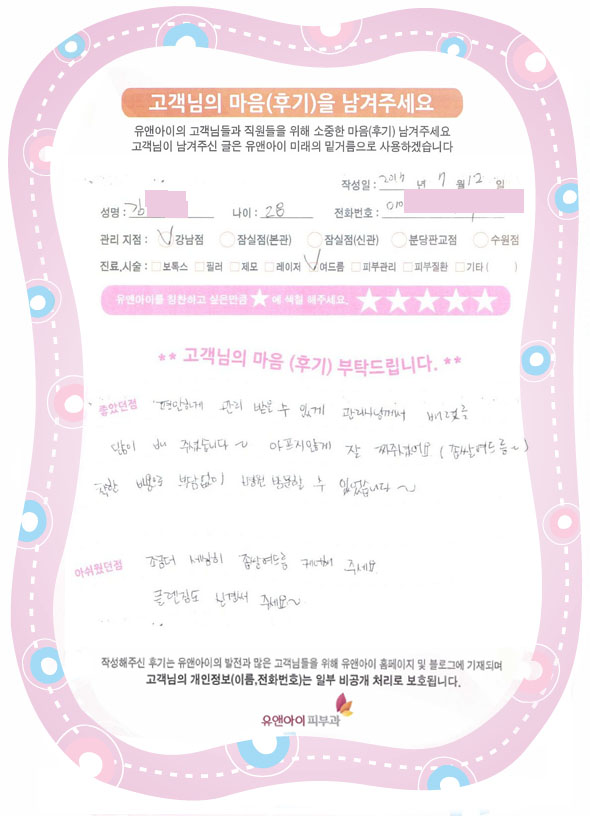 고객님의 마음(후기)을 남겨주세요
유앤아이의 고객님들과 직원들을 위해 소중한 마음(후기) 남겨주세요
고객님이 남겨주신 글은 유앤아이 미래의 밑거름으로 사용하겠습니다
작성일 : 년 7 월 12 일
성명 : 김 나이 : 28 전화번호 : 010
관리 지점 : 강남점 잠실점(본관) 잠실점(신관) 분당판교점 수원점
진료,시술 : 보톡스 필러 제모 레이저 여드름 피부관리 피부질환 기타 ( )
유앤아이를 칭찬하고 싶은만큼 ★ 에 색칠 해주세요. ★★★★★
** 고객님의 마음 (후기) 부탁드립니다. **
좋았던점 편안하게 관리 받을 수 있게 관리사님께서 배려를
많이 해 주셨습니다~ 아프지않게 잘 짜주셨어요 (좁쌀여드름~)
착한 비용으로 부담없이 방문할 수 있었습니다~
아쉬웠던점 조금더 세밀히 좁쌀여드름 케어해 주세요
클렌징도 신경써 주세요~
작성해주신 후기는 유앤아이의 발전과 많은 고객님들을 위해 유앤아이 홈페이지 및 블로그에 기재되며
고객님의 개인정보(이름,전화번호)는 일부 비공개 처리로 보호됩니다.
유앤아이피부과